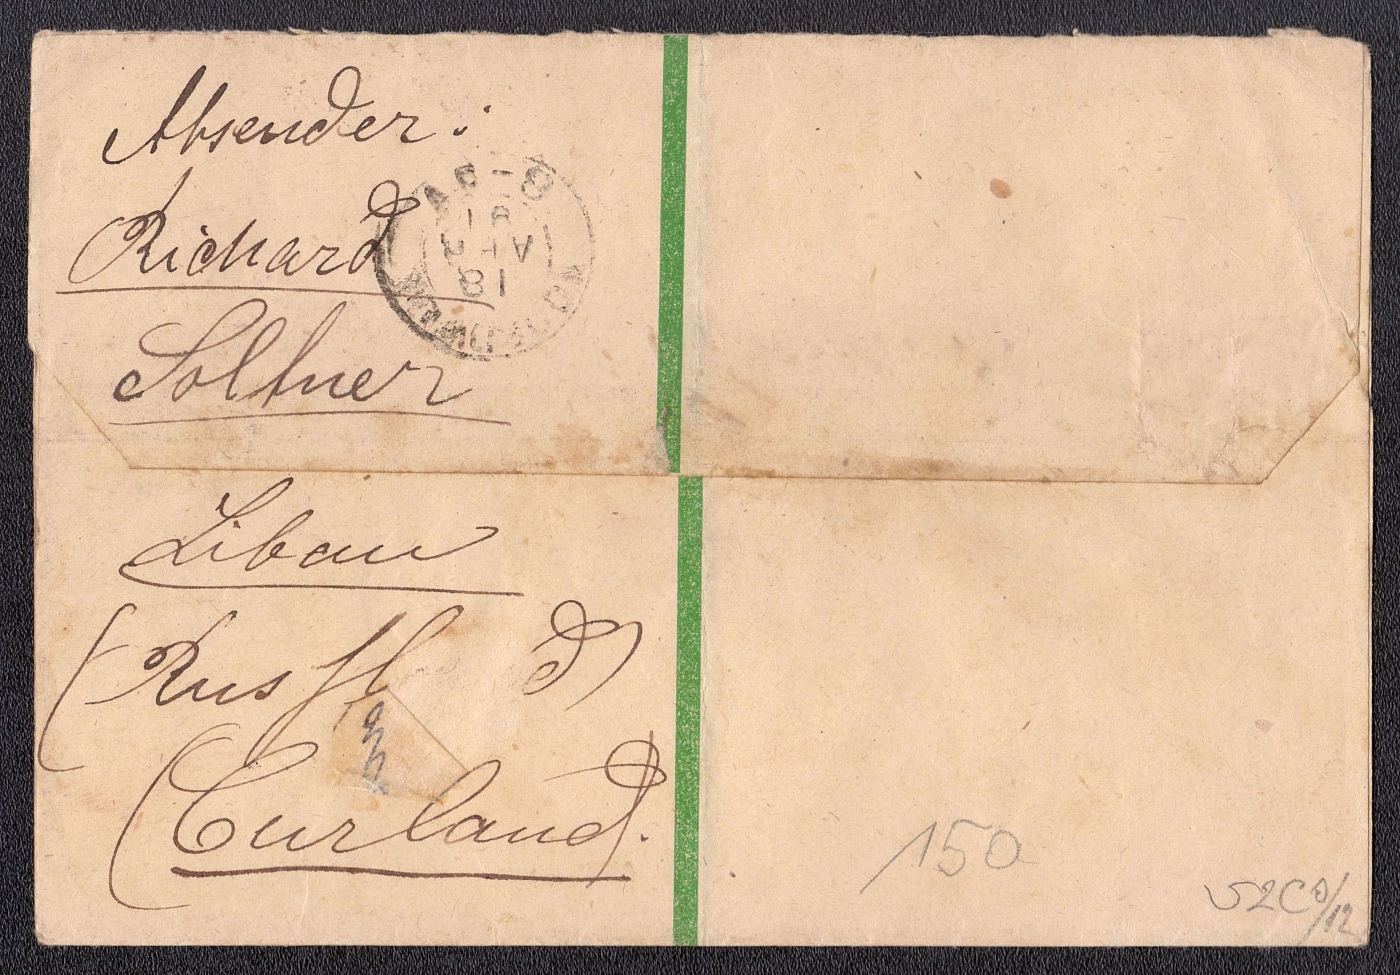 Absender:
Richard
Soltner
Libau
(Russl d)
(Curland).
18
AP
91
150